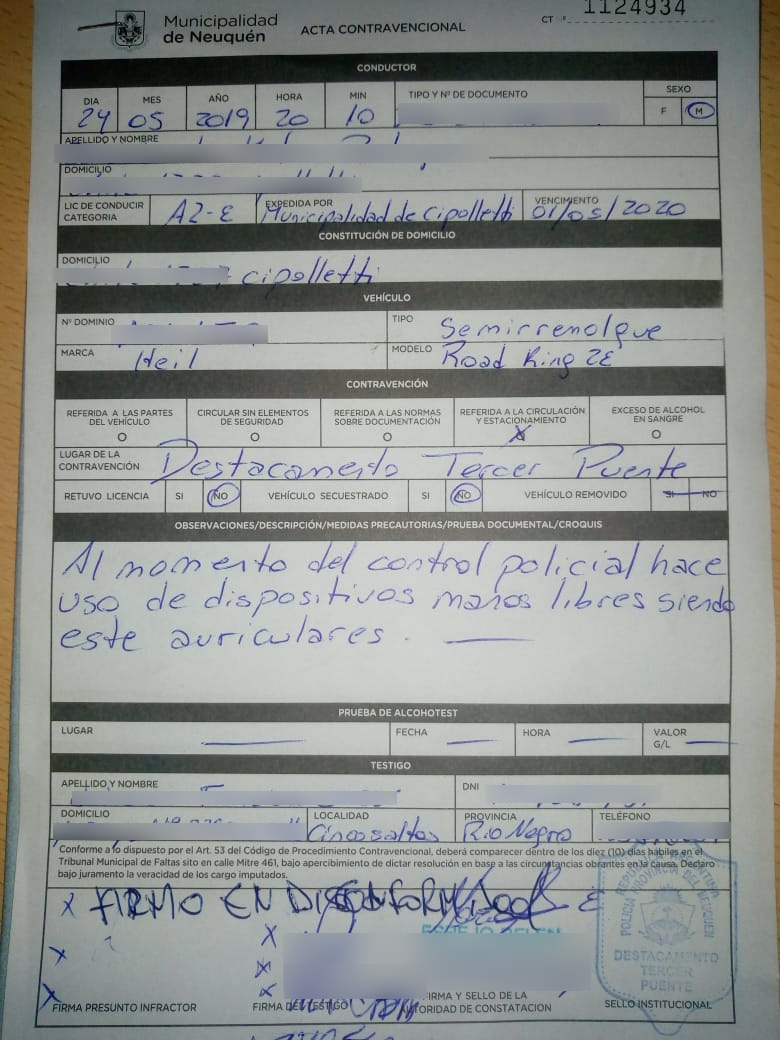 Municipalidad
de Neuquén
ACTA CONTRAVENCIONAL
CT Nº 1124934
CONDUCTOR
DIA MES AÑO HORA MIN TIPO Y Nº DE DOCUMENTO SEXO
24 05 2019 20 10 F M
APELLIDO Y NOMBRE
DOMICILIO
LIC DE CONDUCIR CATEGORIA A2-E EXPEDIDA POR Municipalidad de Cipolletti VENCIMIENTO 01/05/2020
CONSTITUCIÓN DE DOMICILIO
DOMICILIO
cipolletti
VEHÍCULO
Nº DOMINIO TIPO Semirremolque
MARCA Heil MODELO Road King 2E
CONTRAVENCIÓN
REFERIDA A LAS PARTES DEL VEHÍCULO
CIRCULAR SIN ELEMENTOS DE SEGURIDAD
REFERIDA A LAS NORMAS SOBRE DOCUMENTACIÓN
REFERIDA A LA CIRCULACIÓN Y ESTACIONAMIENTO X
EXCESO DE ALCOHOL EN SANGRE
LUGAR DE LA CONTRAVENCIÓN Destacamento Tercer Puente
RETUVO LICENCIA SI NO VEHÍCULO SECUESTRADO SI NO VEHÍCULO REMOVIDO SI NO
OBSERVACIONES/DESCRIPCIÓN/MEDIDAS PRECAUTORIAS/PRUEBA DOCUMENTAL/CROQUIS
Al momento del control policial hace
uso de dispositivos manos libres siendo
este auriculares.
PRUEBA DE ALCOHOTEST
LUGAR FECHA HORA VALOR G/L
TESTIGO
APELLIDO Y NOMBRE DNI
DOMICILIO LOCALIDAD PROVINCIA TELÉFONO
Cinco saltos Rio Negro
Conforme a lo dispuesto por el Art. 53 del Código de Procedimiento Contravencional, deberá comparecer dentro de los diez (10) días habiles en el
Tribunal Municipal de Faltas sito en calle Mitre 461, bajo apercibimiento de dictar resolución en base a las circunstancias obrantes en la causa. Declaro
bajo juramento la veracidad de los cargo imputados.
X FIRMO EN DISCONFORMIDAD
X
X
X
X
X
FIRMA PRESUNTO INFRACTOR
FIRMA DEL TESTIGO
FIRMA Y SELLO DE LA AUTORIDAD DE CONSTATACION
SELLO INSTITUCIONAL
POLICIA PROVINCIA DEL NEUQUEN
DESTACAMENTO
TERCER
PUENTE